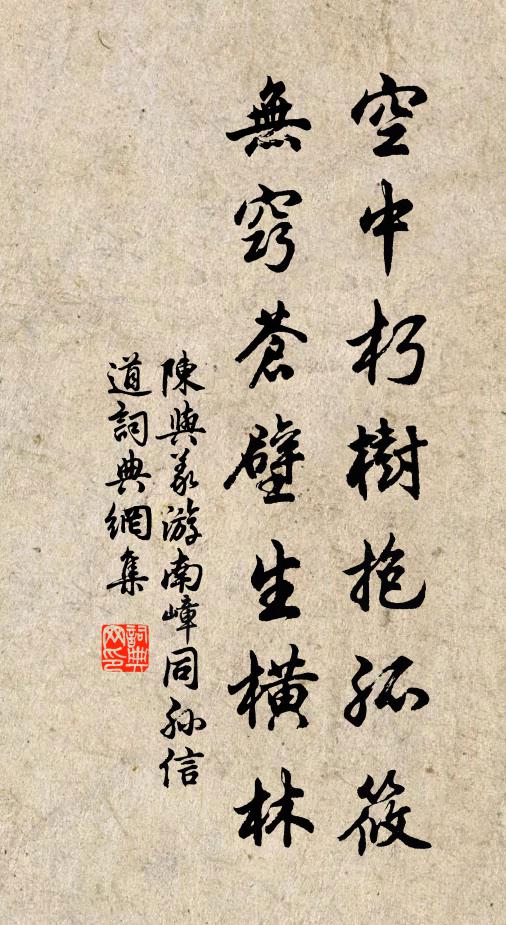 空中朽樹抱孤筱
無窮蒼壁生橫林
陳與義游南嶂同孫信
道詞典網集
詞典
网印